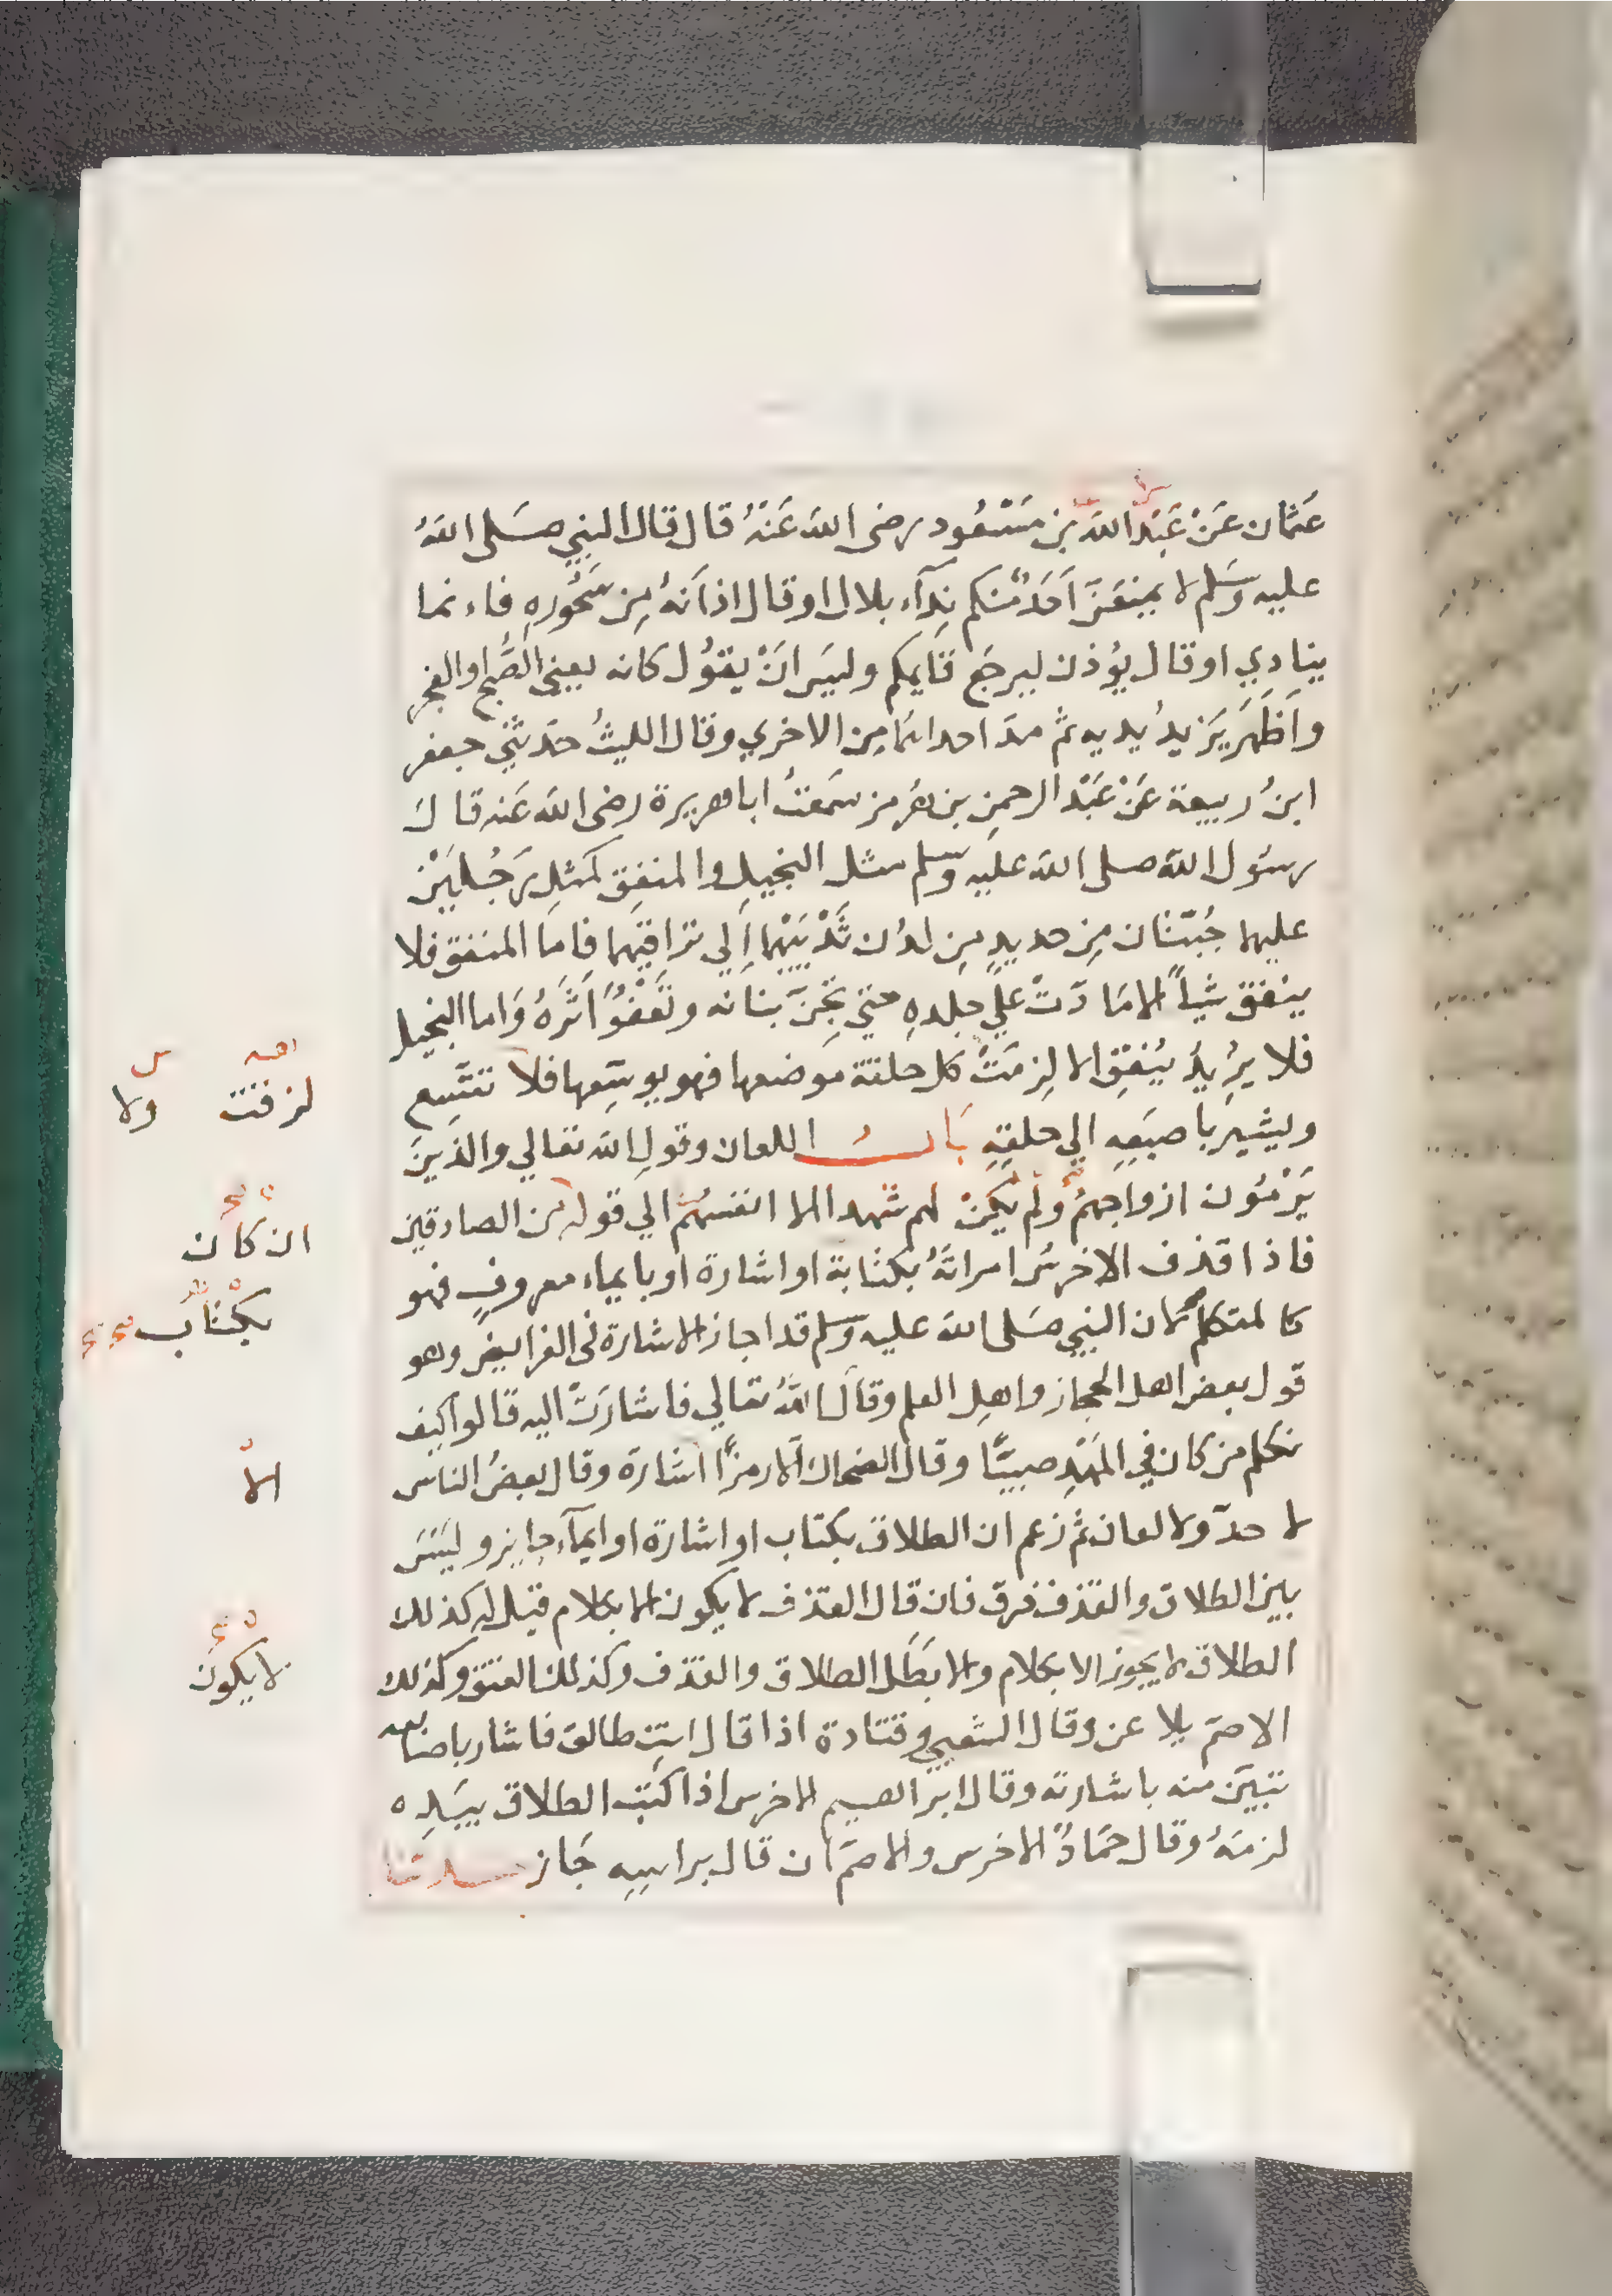 عثمان عَنْ عَبْدِ اللهِ بنِ مَسْعُود رضى الله عَنْهُ قال قال النبي صَلى اللهُ
عليه وسَلم لا يمنعَنَّ اَحَدًا منكم نِدَآء بلال او قال اذانهُ مِن سَحُورهِ فاءنما
ينادي او قال يُؤذن ليرجَع قايمكم وليسَ انْ يقُول كانه يعني الصُّبح او الفجر
واَظهَر يَزيدُ يديه ثم مدّ احداهُما مِن الاخري وقال الليثُ حَدثني جعفر
ابنُ ربيعة عَنْ عَبْد الرحمنِ بن هُرمز سَمعتُ ابا هريرة رضى الله عَنه قال
رسُول الله صلى الله عليه وسلم مثل البخيلِ والمنفِق كمَثلِ رَجُليَنْ
عليهما جُبّتان مِن حديدٍ مِن لدُن ثَدْيَيْهما اِلي تراقِيهما فاما المنفق فلا
ينفق شياً الا مَادَّتْ علي جلدهِ حتي تُجِنَّ بنانه وتَعْفُوَ اَثرَهُ وَاما البخيل
فلا يُرِيدُ يُنفِق الا لزِمَتْ كل حلقة مَوضعها فهو يوسّعها فلا تتّسع
ويشير باصبَعِهِ الي حلقِهِ بَابُ اللعان وقولِ الله تعالي والذينَ
يَرْمُون ازواجهمُ ولم يَكنْ لهم شهدا الا انفسُهُم الي قوله من الصادقين
فاذا قذف الاخرسُ امراتهُ بكتابة او اشارة او بايماء معروفٍ فهو
كالمتكلم لان النبي صَلى الله عليه وسلم قد اجاز الاشارة في الفرايض وهو
قول بعض اهل الحجاز واهلِ العلم وقال اللهُ تعالي فاشارَتْ اليه قالوا كيف
نكلم من كان في المَهْدِ صبيّا وقال الضحاك الا رمزًا اشارة وقال بعضُ الناس
لا حدّ ولا لعان ثم زعم ان الطلاق بكتاب او اشارة او ايمآء جايز وليسَ
بين الطلاق والقذف فرق فان قال القذف لا يكون الا بكلام قيل له كذلك
الطلاق لا يجوز الا بكلام والا بَطَل الطلاق والقذف وكذلك العتق وكذلك
الاصمّ يلاعن وقال الشعبي وقتادة اذا قال انتِ طالق فاشار باصابعه
تبينَ منه باشارته وقال ابراهيم الاخرس اذا كَتبَ الطلاق بيَدِه
لزمَهُ وقال حَمّادٌ الاخرس والاصمّ ان قال براسِهِ جَاز حدثنا
لزقت ولا
ان كان
بكتاب
الا
لا يكون